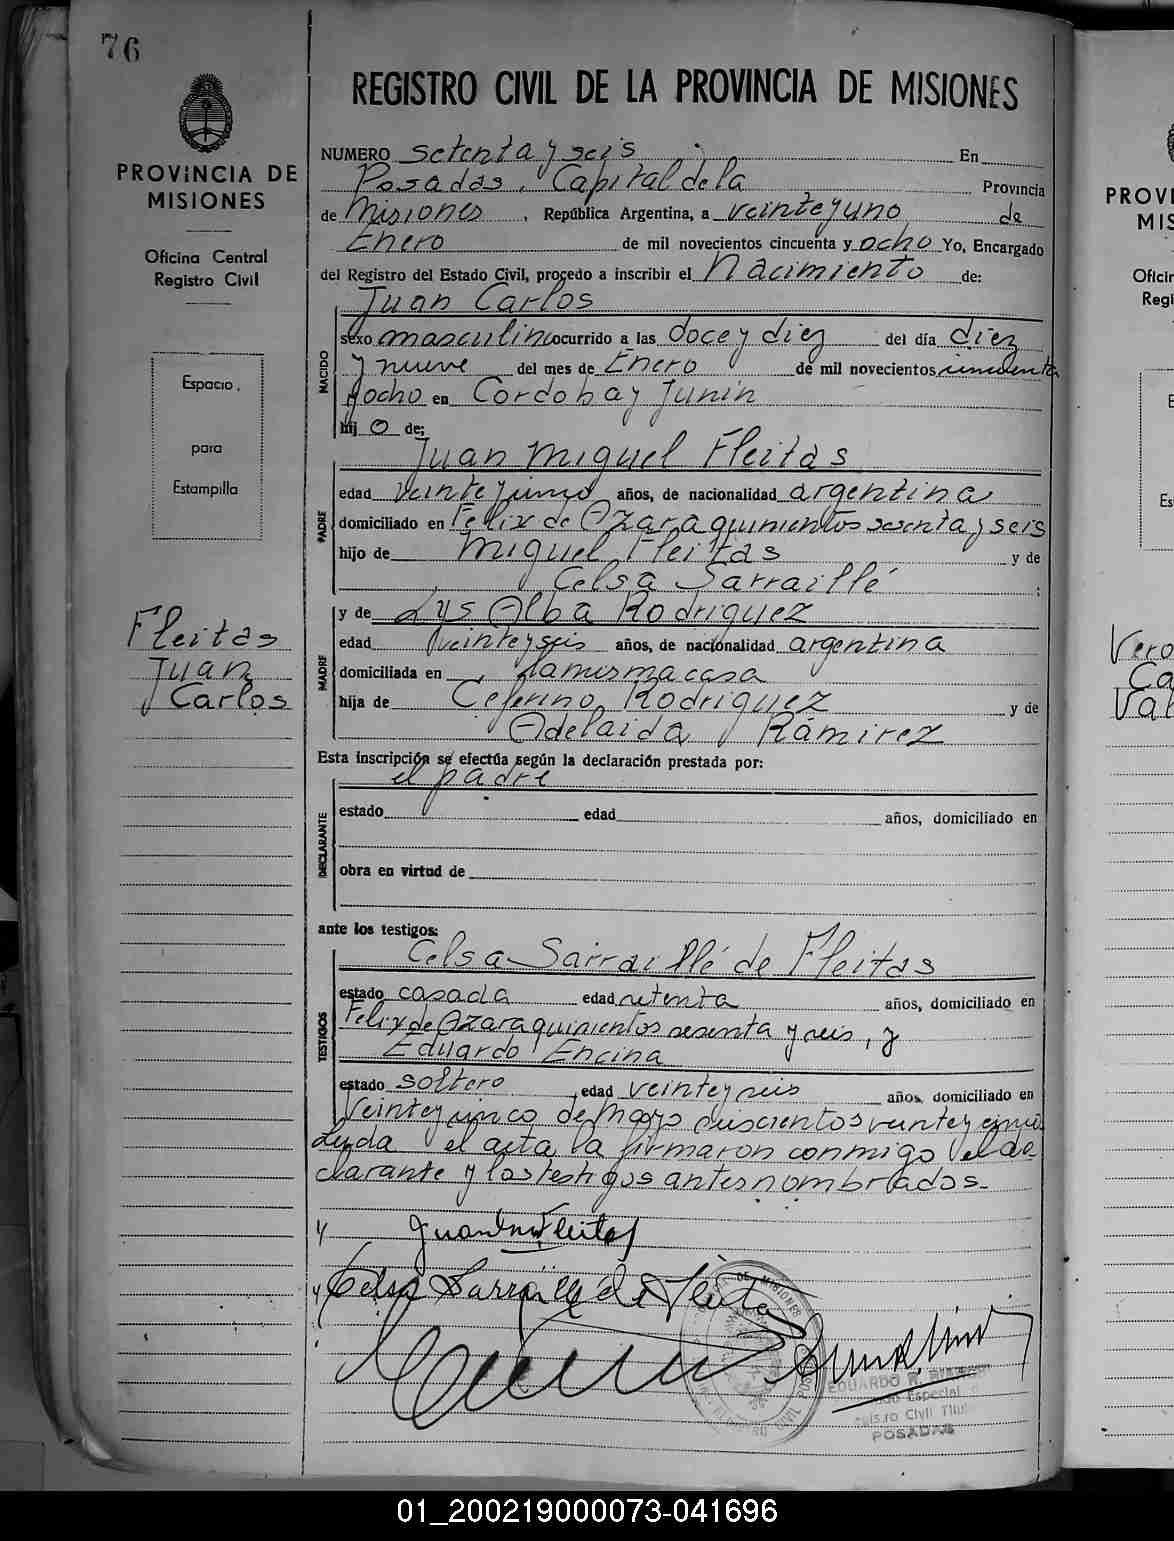 76
REGISTRO CIVIL DE LA PROVINCIA DE MISIONES
PROVINCIA DE
MISIONES
Oficina Central
Registro Civil
Espacio
para
Estampilla
Fleitas
Juan
Carlos
NUMERO setenta y seis En
Posadas, Capital de la Provincia
de Misiones, República Argentina, a veinte y uno de
Enero de mil novecientos cincuenta y ocho Yo, Encargado
del Registro del Estado Civil, procedo a inscribir el Nacimiento de:
Juan Carlos
NACIDO
sexo masculino ocurrido a las doce y diez del día diez
y nueve del mes de Enero de mil novecientos cincuenta
y ocho en Cordoba y Junín
hij o de:
Juan Miguel Fleitas
PADRE
edad veinte y uno años, de nacionalidad argentina
domiciliado en Felix de Azara quinientos sesenta y seis
hijo de Miguel Fleitas y de
Celsa Sarraillé ;
y de Lys Alba Rodriguez
MADRE
edad veinte y seis años, de nacionalidad argentina
domiciliada en la misma casa
hija de Ceferino Rodriguez y de
Adelaida Ramirez
Esta inscripción se efectúa según la declaración prestada por:
el padre
DECLARANTE
estado edad años, domiciliado en
obra en virtud de
ante los testigos:
Celsa Sarraillé de Fleitas
TESTIGOS
estado casada edad años, domiciliado en
Felix de Azara quinientos sesenta y seis, y
Eduardo Encina
estado soltero, edad veinte y seis años, domiciliado en
Veinte y cinco de Mayo veinte y
Leida el acta la firmaron conmigo el de
clarante y los testigos antes nombrados.
Celsa Sarraillé de Fleitas
DE MISIONES
EDUARDO R.
Especial
Registro Civil
POSADAS
PROVI
MIS
Oficin
Regi
E
Es
Vero
Ca
Val
01_200219000073-041696